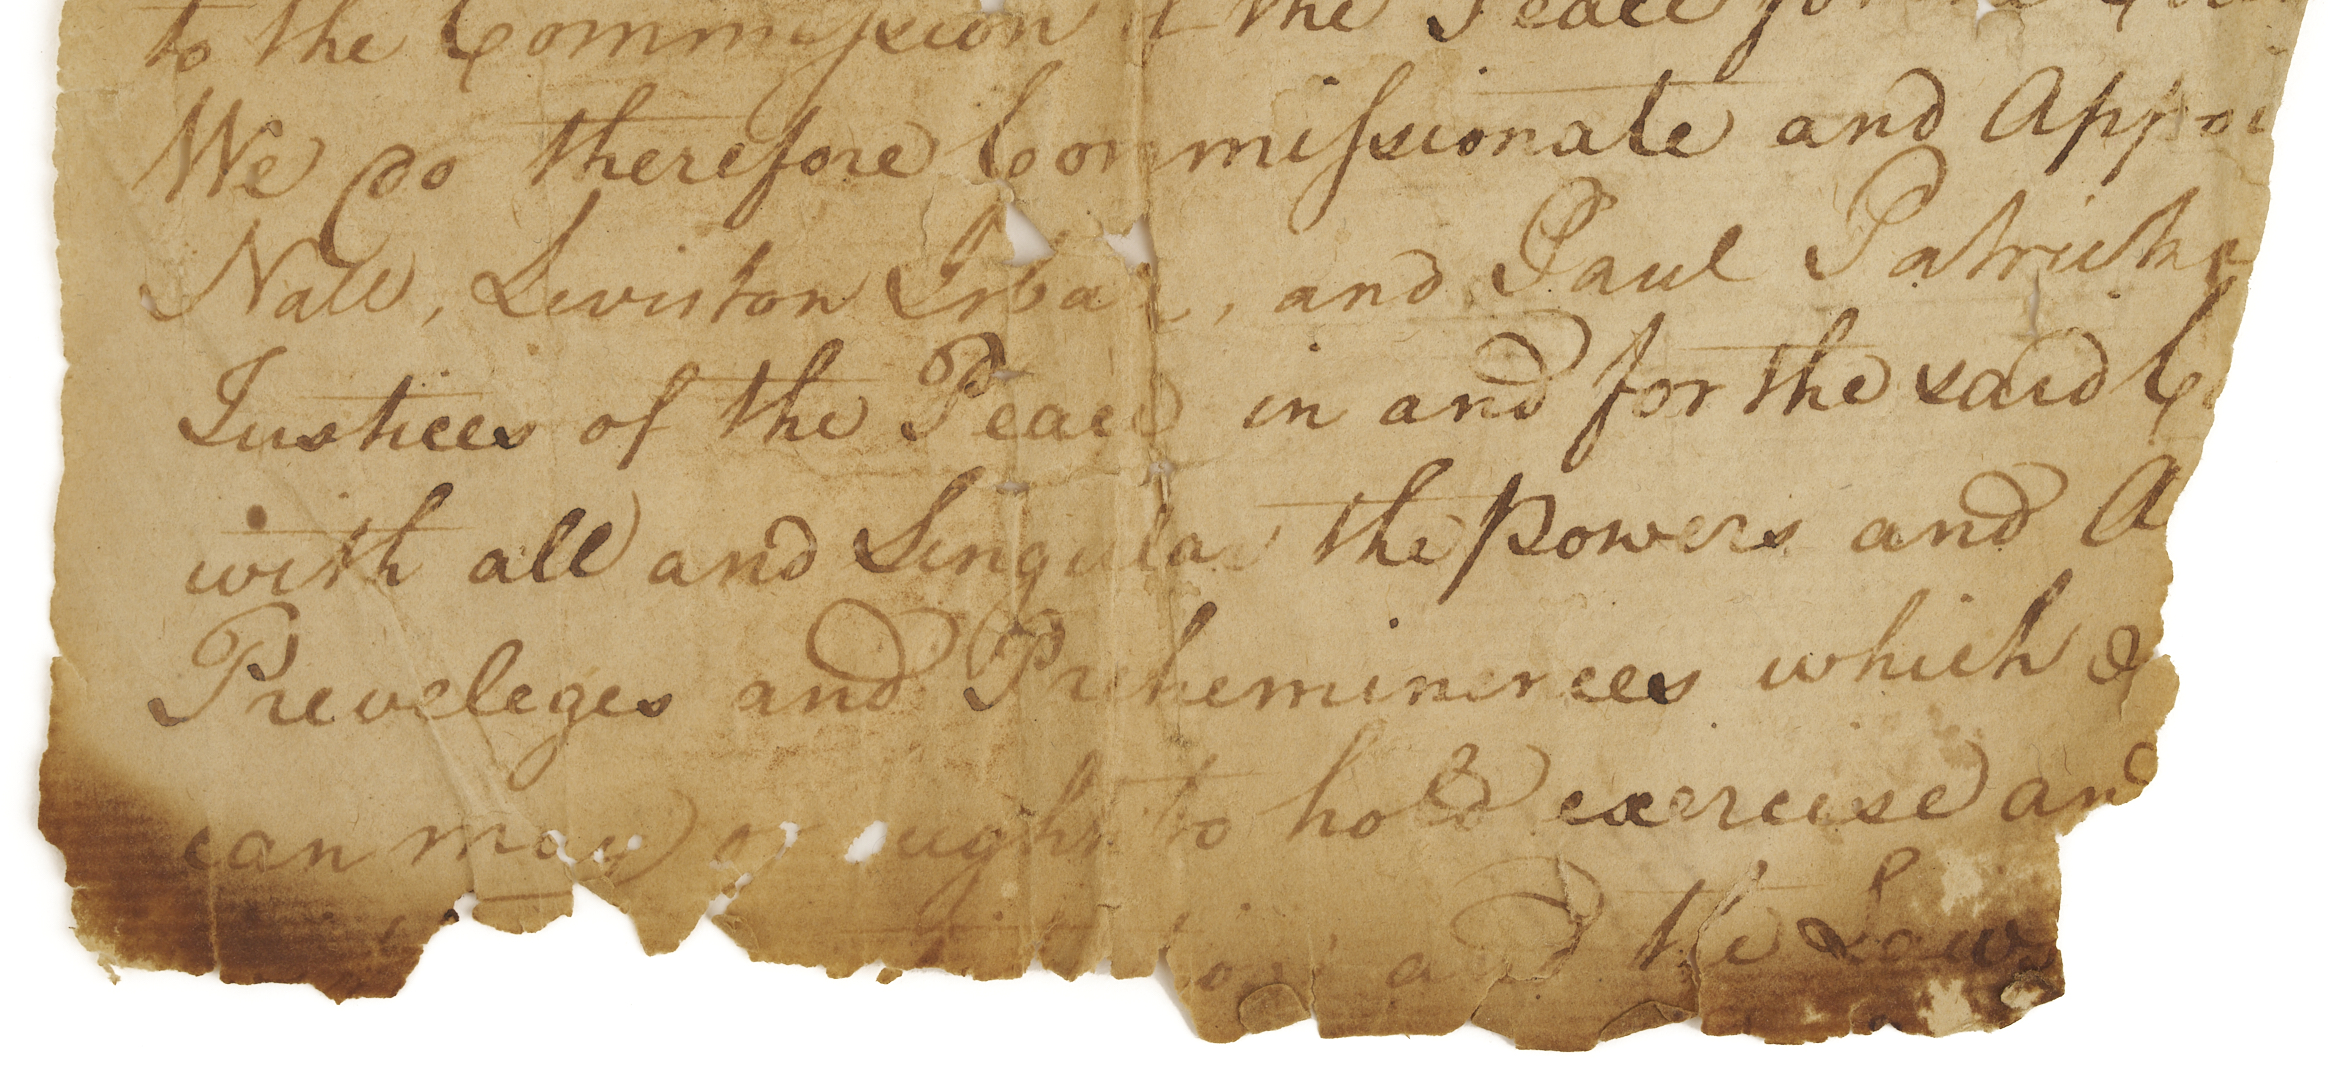 to the Commission of the Peace for the
We do therefore Commissionate and Appoi
Nall, Leviston and Paul Patrick
Justices of the Peace in and for the said Co
with all and Singular the powers and A
Preveleges and Preheminences which
can may or ought to hold exercise an
and the Laws